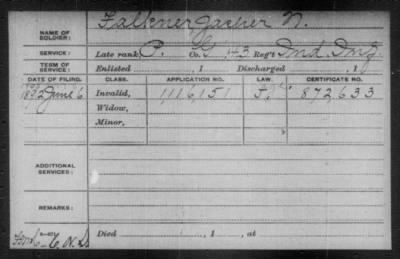 NAME OF SOLDIER: Falkner, Jasper N.
SERVICE: Late rank P. Co. G, 143 Reg't Ind. Inf.
TERM OF SERVICE: Enlisted , 1 Discharged , 1
DATE OF FILING. CLASS. APPLICATION NO. LAW. CERTIFICATE NO.
1892 June 6 Invalid, 1,116,151 872,633
Widow,
Minor,
ADDITIONAL SERVICES:
REMARKS:
Died , 1 , at